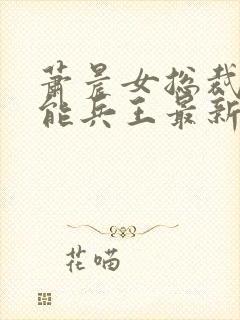 萧晨女总裁
能兵王最新
花喵